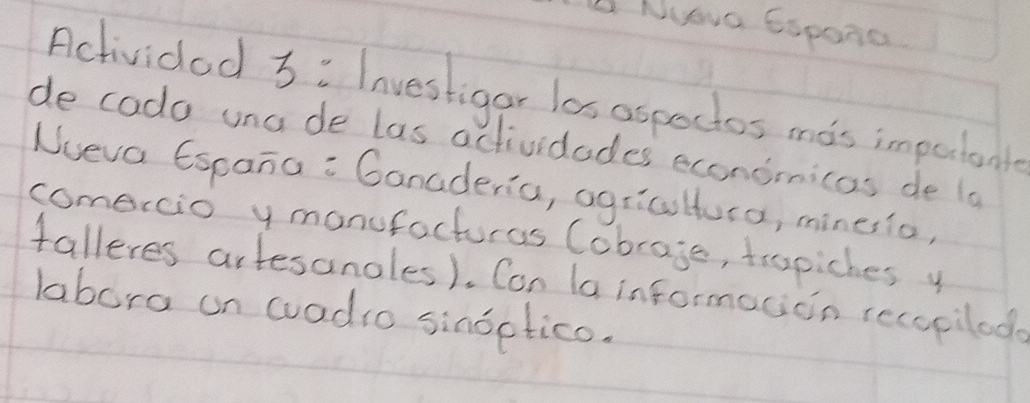 Nueva España
Actividad 3: Investigar los aspectos más importantes
de cada una de las actividades económicas de la
Nueva España: Ganadería, agricultura, minería,
comercio y manufacturas (obraje, trapiches y
talleres artesanales). Con la información recopilada
labora un cuadro sinóptico.